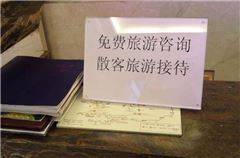 免费旅游咨询
散客旅游接待